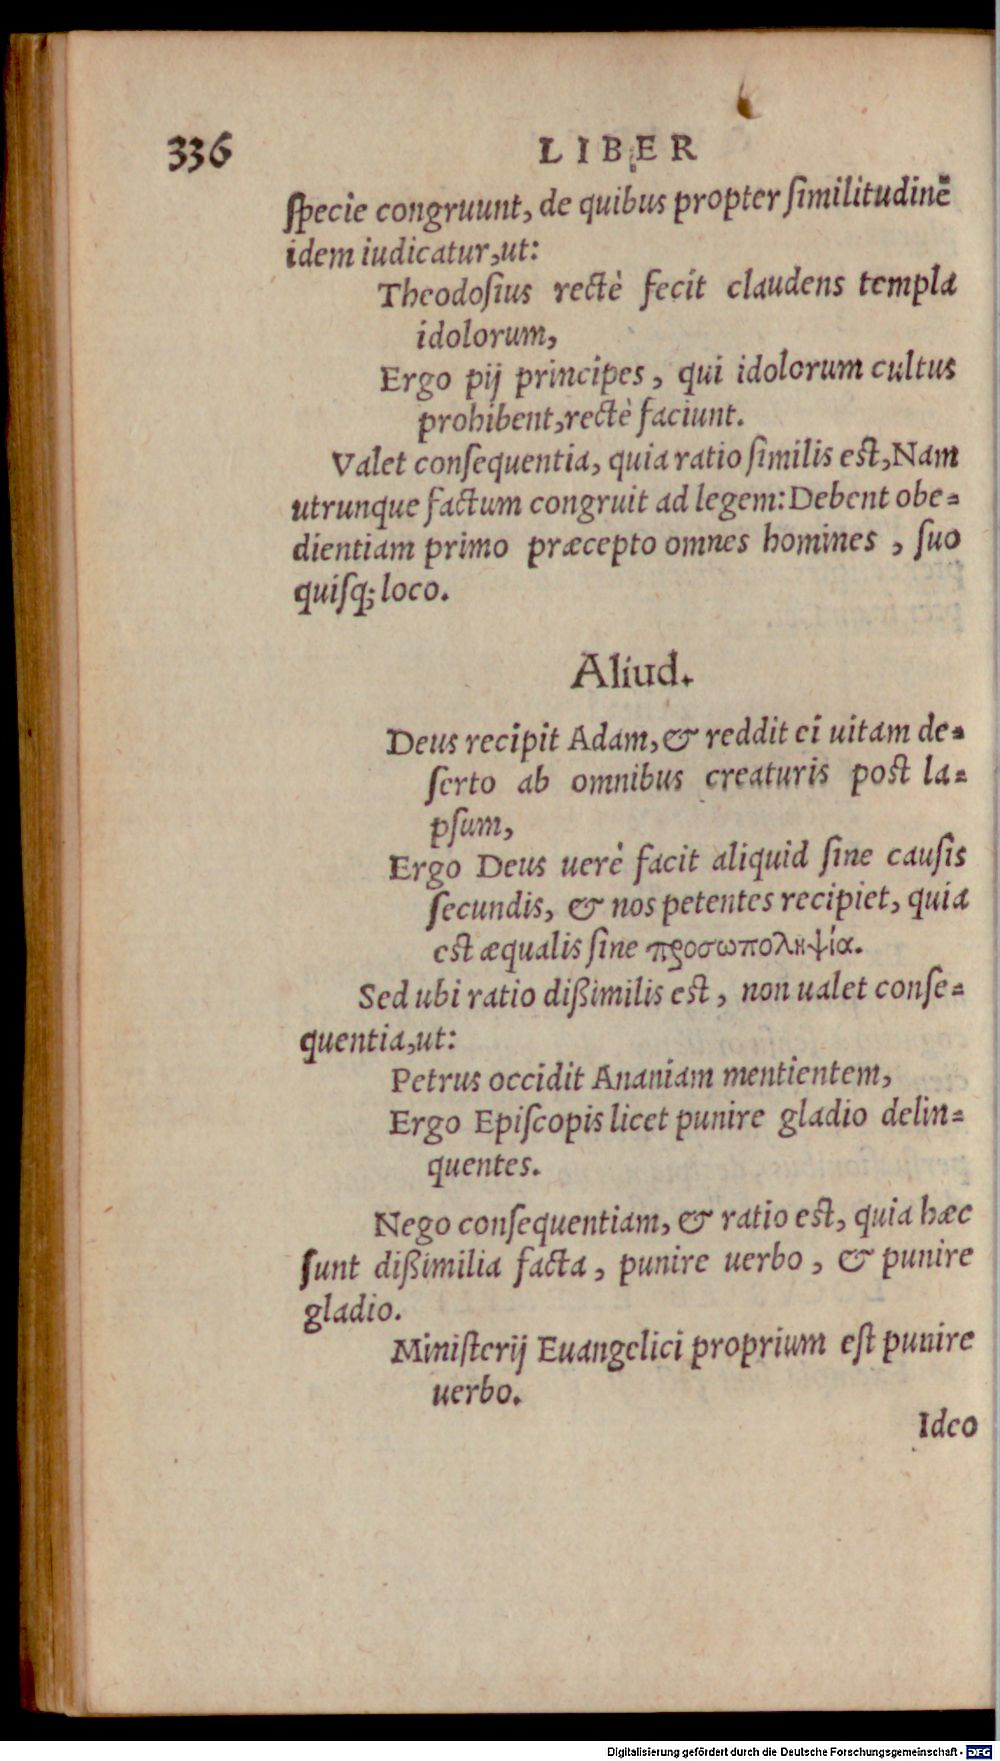 336 LIBER
ſpecie congruunt, de quibus propter ſimilitudinē
idem iudicatur, ut:
Theodoſius rectè fecit claudens templa
idolorum,
Ergo pij principes, qui idolorum cultus
prohibent, rectè faciunt.
Valet conſequentia, quia ratio ſimilis eſt, Nam
utrunque factum congruit ad legem: Debent obe-
dientiam primo præcepto omnes homines, ſuo
quiſq; loco.
Aliud.
Deus recipit Adam, & reddit ei uitam de-
ſerto ab omnibus creaturis poſt la-
pſum,
Ergo Deus uerè facit aliquid ſine cauſis
ſecundis, & nos petentes recipiet, quia
eſt æqualis ſine προσωποληψία.
Sed ubi ratio dißimilis eſt, non ualet conſe-
quentia, ut:
Petrus occidit Ananiam mentientem,
Ergo Epiſcopis licet punire gladio delin-
quentes.
Nego conſequentiam, & ratio eſt, quia hæc
ſunt dißimilia facta, punire uerbo, & punire
gladio.
Miniſterij Euangelici proprium eſt punire
uerbo.
Ideo
Digitalisierung gefördert durch die Deutsche Forschungsgemeinschaft - DFG